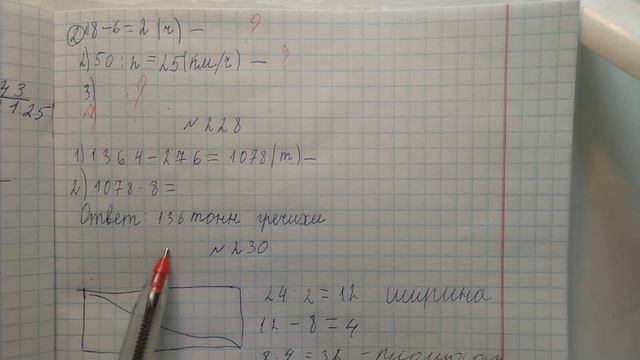 ② 18-6=2(ч) - ?
2) 50:2=25(км/ч) - ?
3) ?
4)
№228
1) 1364-276=1078(т)-
2) 1078·8=
Ответ: 136 тонн гречихи
№230
24:2=12 ширина
12-8=4
8·4=32
43
1125